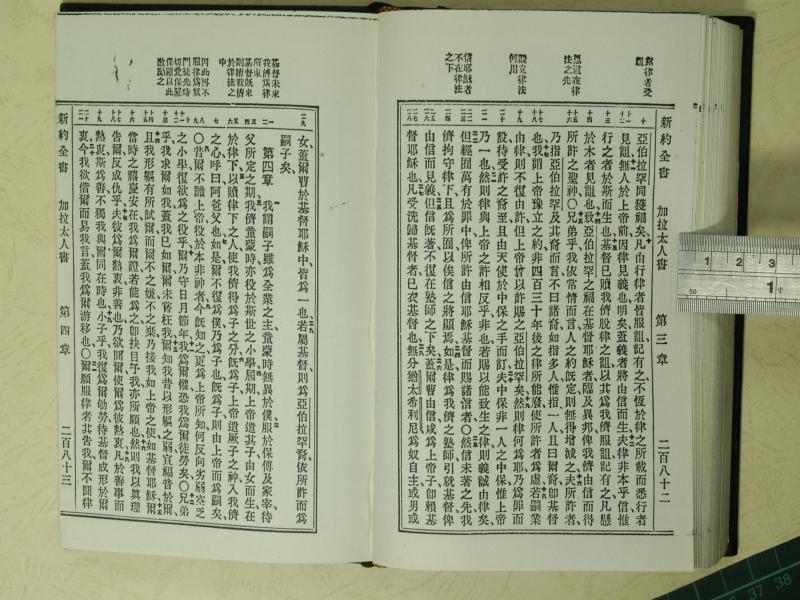 新約全書 加拉太人書 第三章 二百八十二
設立律法何用
信耶穌者不在律法之下
亞伯拉罕同獲福矣、凡由行律者皆服詛、記有之、不恆於律之所載而悉行者
見詛、無人於上帝前因律見義也明矣、蓋義者將由信而生、夫律非本乎信、惟
行之者於斯而生也、基督已贖我儕脫律之詛、以其爲我儕服詛、記有之、凡懸
於木者見詛也、致亞伯拉罕之福、在基督耶穌者臨及異邦、俾我儕由信而得
所許之聖神、○兄弟乎、我依常情而言、人之約旣定、則無得增減之、夫所許者、
乃指亞伯拉罕及其裔而言、不曰諸裔、如指多人、惟指一人、且曰爾裔、卽基督
也、我謂上帝豫立之約、非四百三十年後之律所能廢、使所許者爲虛、若嗣業
由律、則不復由許、但上帝曾以許賜之亞伯拉罕矣、然則律何爲耶、乃爲罪而
設、待受許之裔至、且由天使於中保之手而訂、夫中保非一人之中保、惟上帝
乃一也、然則律與上帝之許相反乎、非也、若賜以能致生之律、則義誠由律矣、
但經囿萬有於罪中、俾所許由信耶穌基督而賜諸信者、○然信未著之先、我
儕拘守律下、且爲所囿、以俟信之將顯焉、如是律爲我儕之塾師、引就基督、俾
由信而見義、但信旣著、不復在塾師之下矣、蓋爾曹由信咸爲上帝子、卽賴基
督耶穌也、凡受洗歸基督者、已衣基督也、無分猶太希利尼、爲奴自主、或男或
基督未來我儕爲律所束
基督旣來則贖我儕於律法之中
女、蓋爾曹於基督耶穌中皆爲一也、若屬基督、則爲亞伯拉罕裔、依所許而爲
嗣子矣、
第四章 我謂嗣子雖爲全業之主、童蒙時無異於僕、服於保傅及家宰、待
父所定之期、我儕童蒙時、亦役於斯世之小學、屆期、上帝遣其子、由女而生、在
於律下、以贖律下之人、使我儕得爲子之分、旣爲子、上帝遣厥子之神入我儕
之心、呼曰阿爸父也、如是爾不復爲僕、乃爲子也、旣爲子、則由上帝而爲嗣矣、
○昔爾不識上帝、役於本非神者、今旣知之、更爲上帝所知、何反向劣弱空乏
之小學、復欲爲之役乎、爾乃守日月節年、我爲爾懼、恐我爲爾徒勞矣、○兄弟
乎、我求爾如我、蓋我已如爾、爾未嘗枉我、爾知我昔以形軀之弱、宣福音於爾、
且我形軀有所試爾、而爾不之嫌、不之棄、乃接我如上帝之使、如基督耶穌、爾
當時之禧臺安在、我爲爾證、若能爲之、卽抉目予我、亦所願也、然則我以眞理
告爾、反成仇乎、夫彼爲爾熱衷、非善也、乃欲間爾、使爾爲彼熱衷、凡於善事而
熱衷、斯爲善、不獨我與爾同在時也、小子乎、我復爲爾劬勞、待基督成形於爾
衷、今我欲偕爾、而易我言、蓋我爲爾游移也、○爾願服律者、其告我、爾不聞律
新約全書 加拉太人書 第四章 二百八十三
1 2 3
50
1寸
37 38